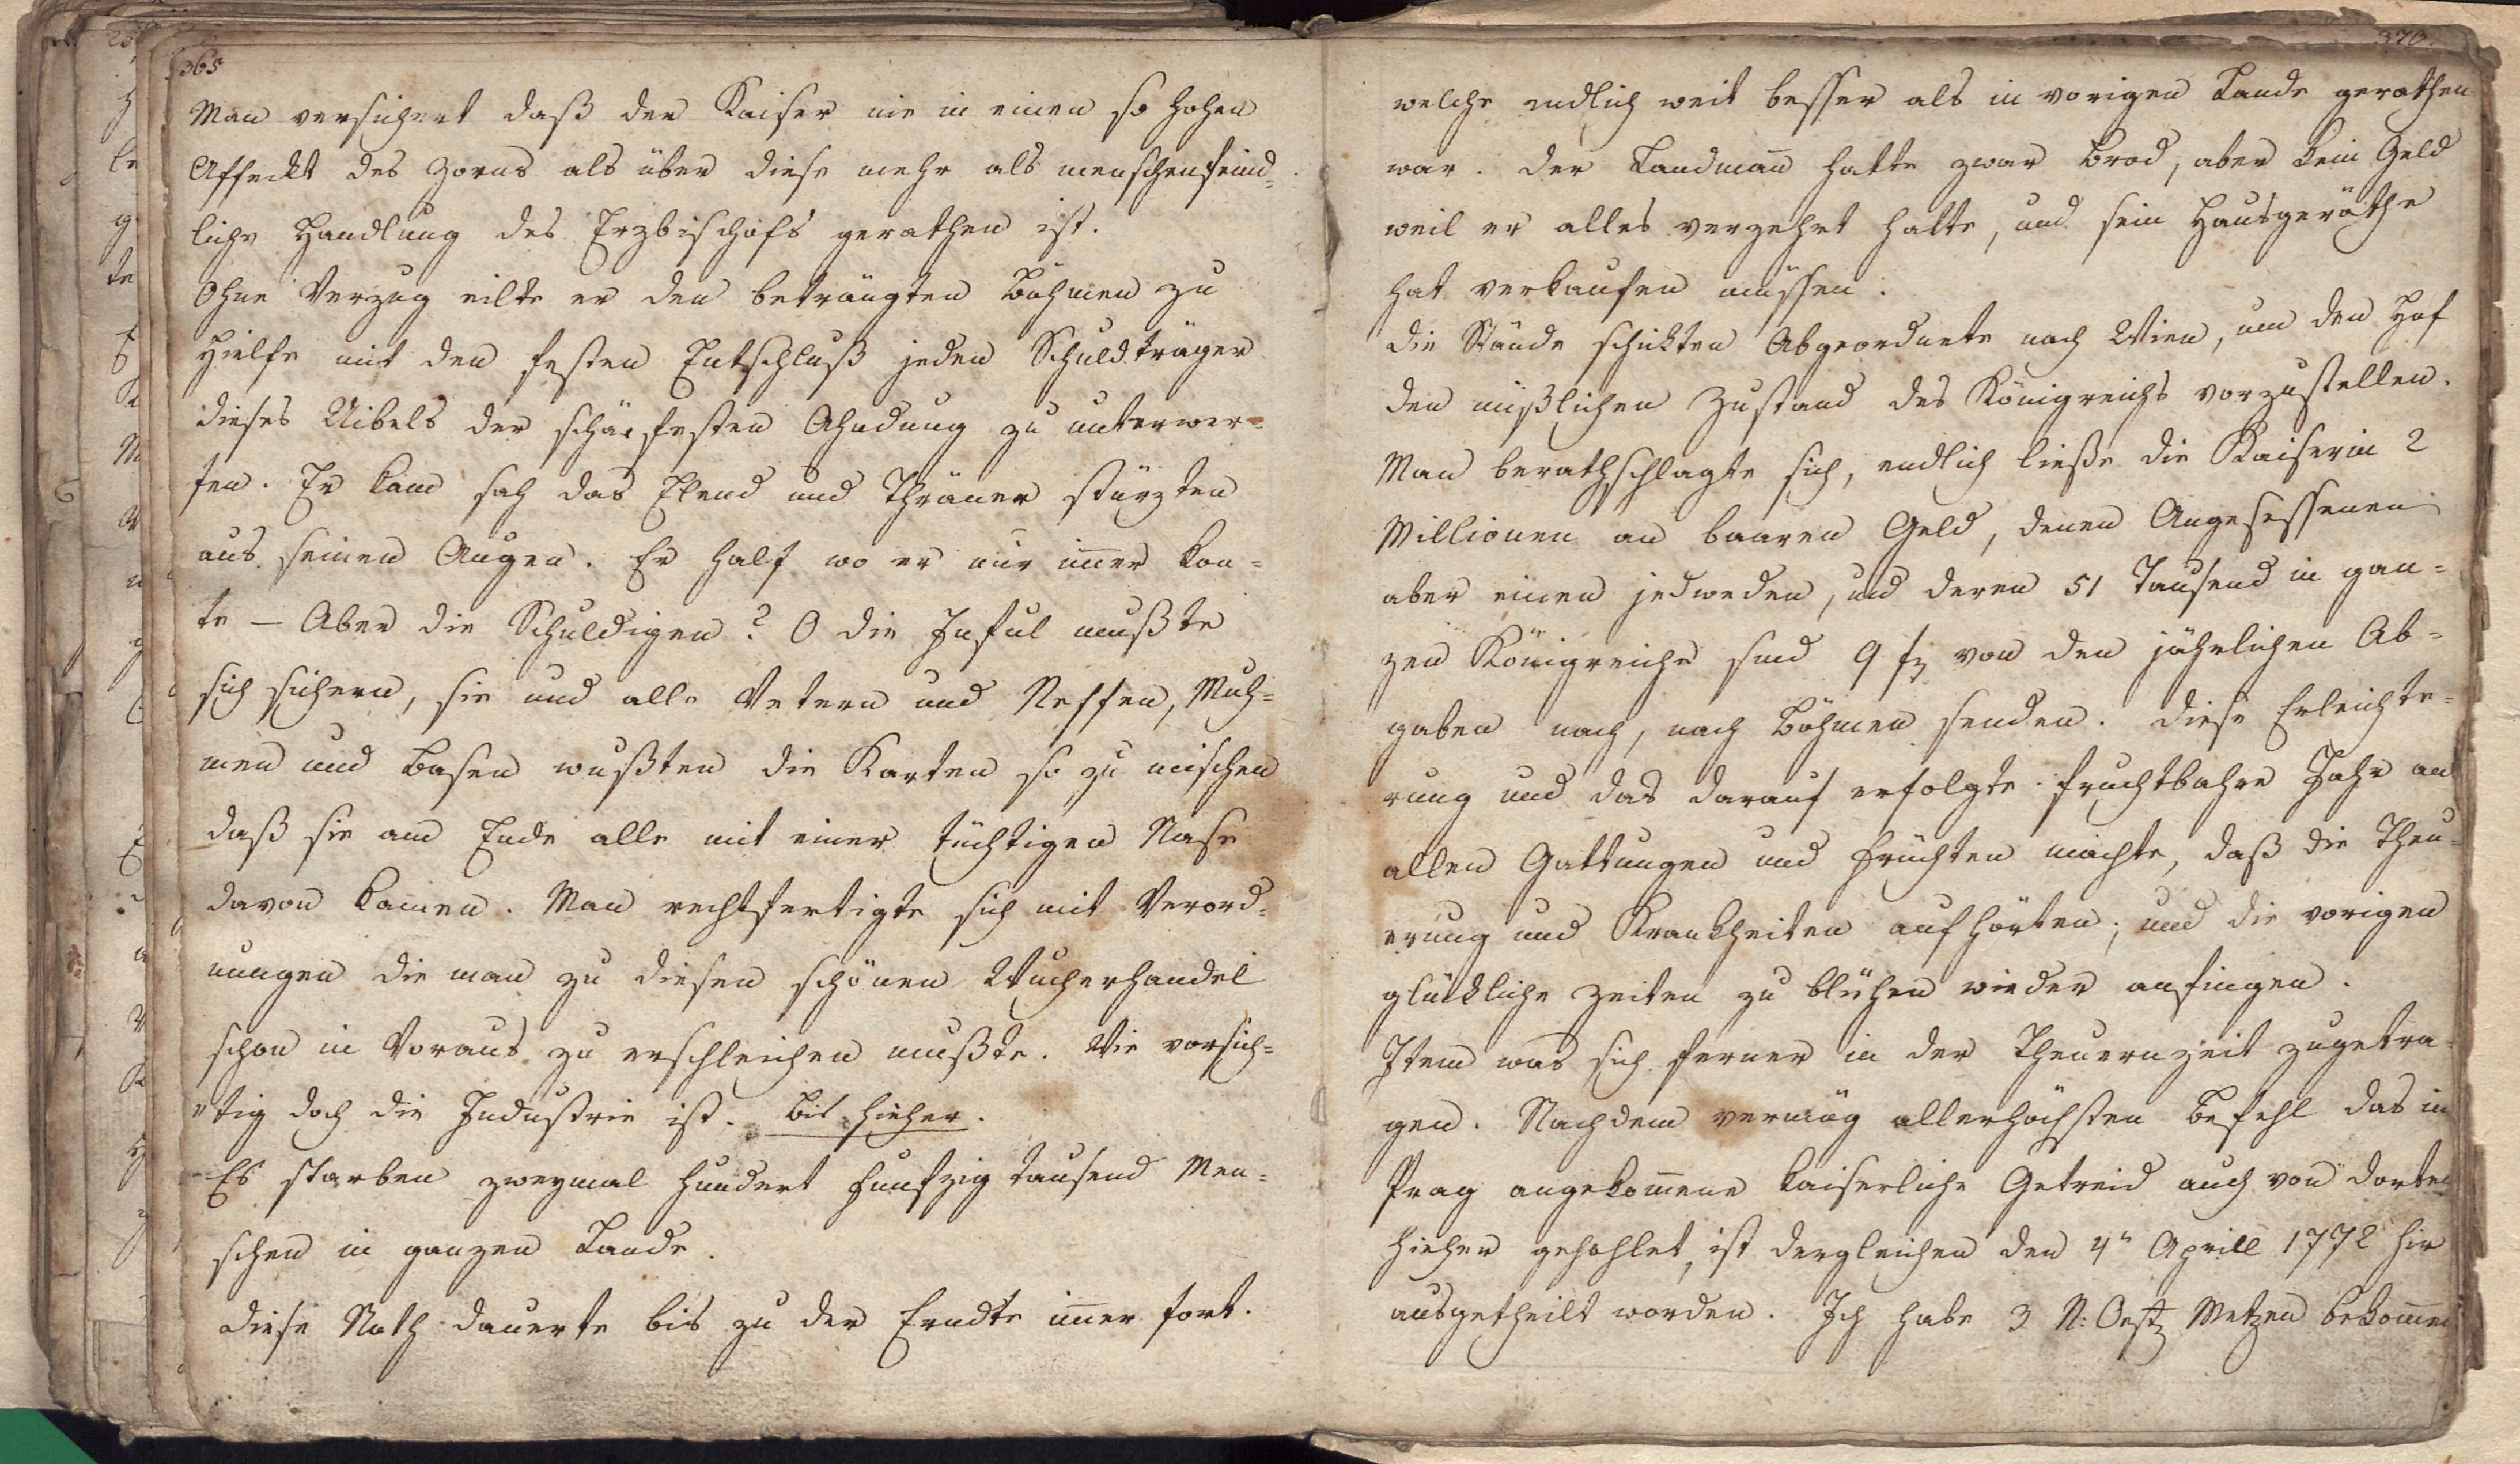 365
Man versichert daß der Kaiser nie in einen so hohen
Affeckt des Zorns als über diese mehr als menschenfeind=
liche Handlung des Erzbischofs gerathen ist.
Ohne Verzug eilte er den beträngten Böhmen zu
Hielfe mit den festen Entschluß jeden Schuldträger
dieses Uibels der schärfesten Ahndung zu unterwer=
fen. Er kam sah das Elend und Thränen stürzten
aus seinen Augen. Er half wo er nur im̅er kon=
te – Aber die Schuldigen? O die Inful mußte
sich sichern, sie und alle Vetern und Neffen, Muh=
men und Basen wußten die Karten so zu mischen
daß sie am Ende alle mit einer tüchtigen Nase
davon kamen. Man rechtfertigte sich mit Verord=
nungen die man zu diesen schönen Wucherhandel
schon in Voraus zu erschleichen wußte. Wie vorsich=
tig doch die Industrie ist. bis hieher.
Es starben zweymal hundert funfzig tausend Men=
schen in ganzen Lande.
Diese Noth dauerte bis zu der Erndte im̅er fort.
370.
welche endlich weit besser als in vorigen Lande gerathen
war. Der Landman̅ hatte zwar Brod, aber kein Geld
weil er alles verzehrt hatte, und sein Hausgeräthe
hat verkaufen müssen.
Die Stände schickten Abgeordnete nach Wien, um den Hof
den mißlichen Zustand des Königreichs vorzustellen.
Man berathschlagte sich, endlich ließe die Kaiserin 2
Millionen an baaren Geld, denen Angesessenen
aber einen jedweden, und deren 51 Tausend in gan=
zen Königreiche sind 9 f von den jährlichen Ab=
gaben nach, nach Böhmen senden. Diese Erleichte=
rung und das darauf erfolgte fruchtbahre Jahr an
allen Gattungen und Früchten machte, daß die Theu=
erung und Krankheiten aufhörten, und die vorigen
glückliche Zeiten zu blühen wieder anfingen.
Item was sich ferner in der Theuernzeit zugetra=
gen. Nachdem vermög allerhöchsten Befehl das in
Prag angekom̅ene kaiserliche Getreid auch von dorten
hieher gehohlet, ist dergleichen den 4ⁿ Aprill 1772 hir
ausgetheilt worden. Ich habe 3 N: Oest Metzen bekom̅en